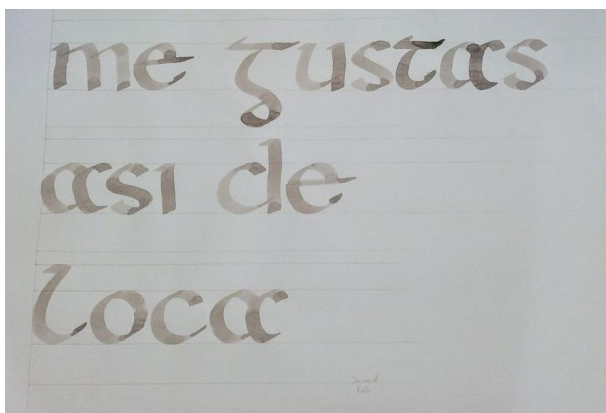 me gustas
asi de
loca